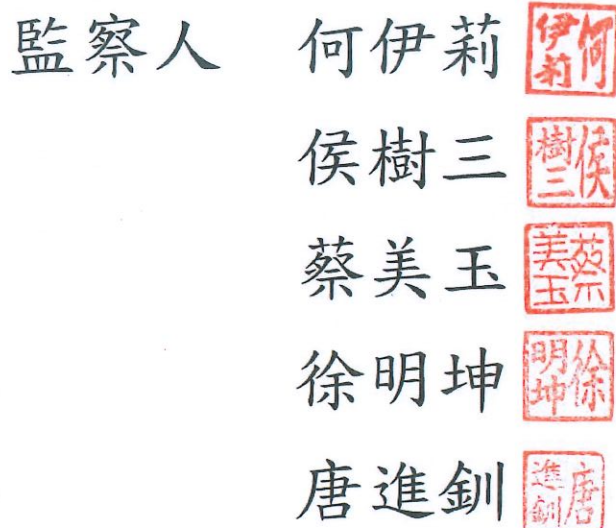 監察人 何伊莉 何伊莉
侯樹三 侯樹三
蔡美玉 蔡美玉
徐明坤 徐明坤
唐進釧 唐進釧